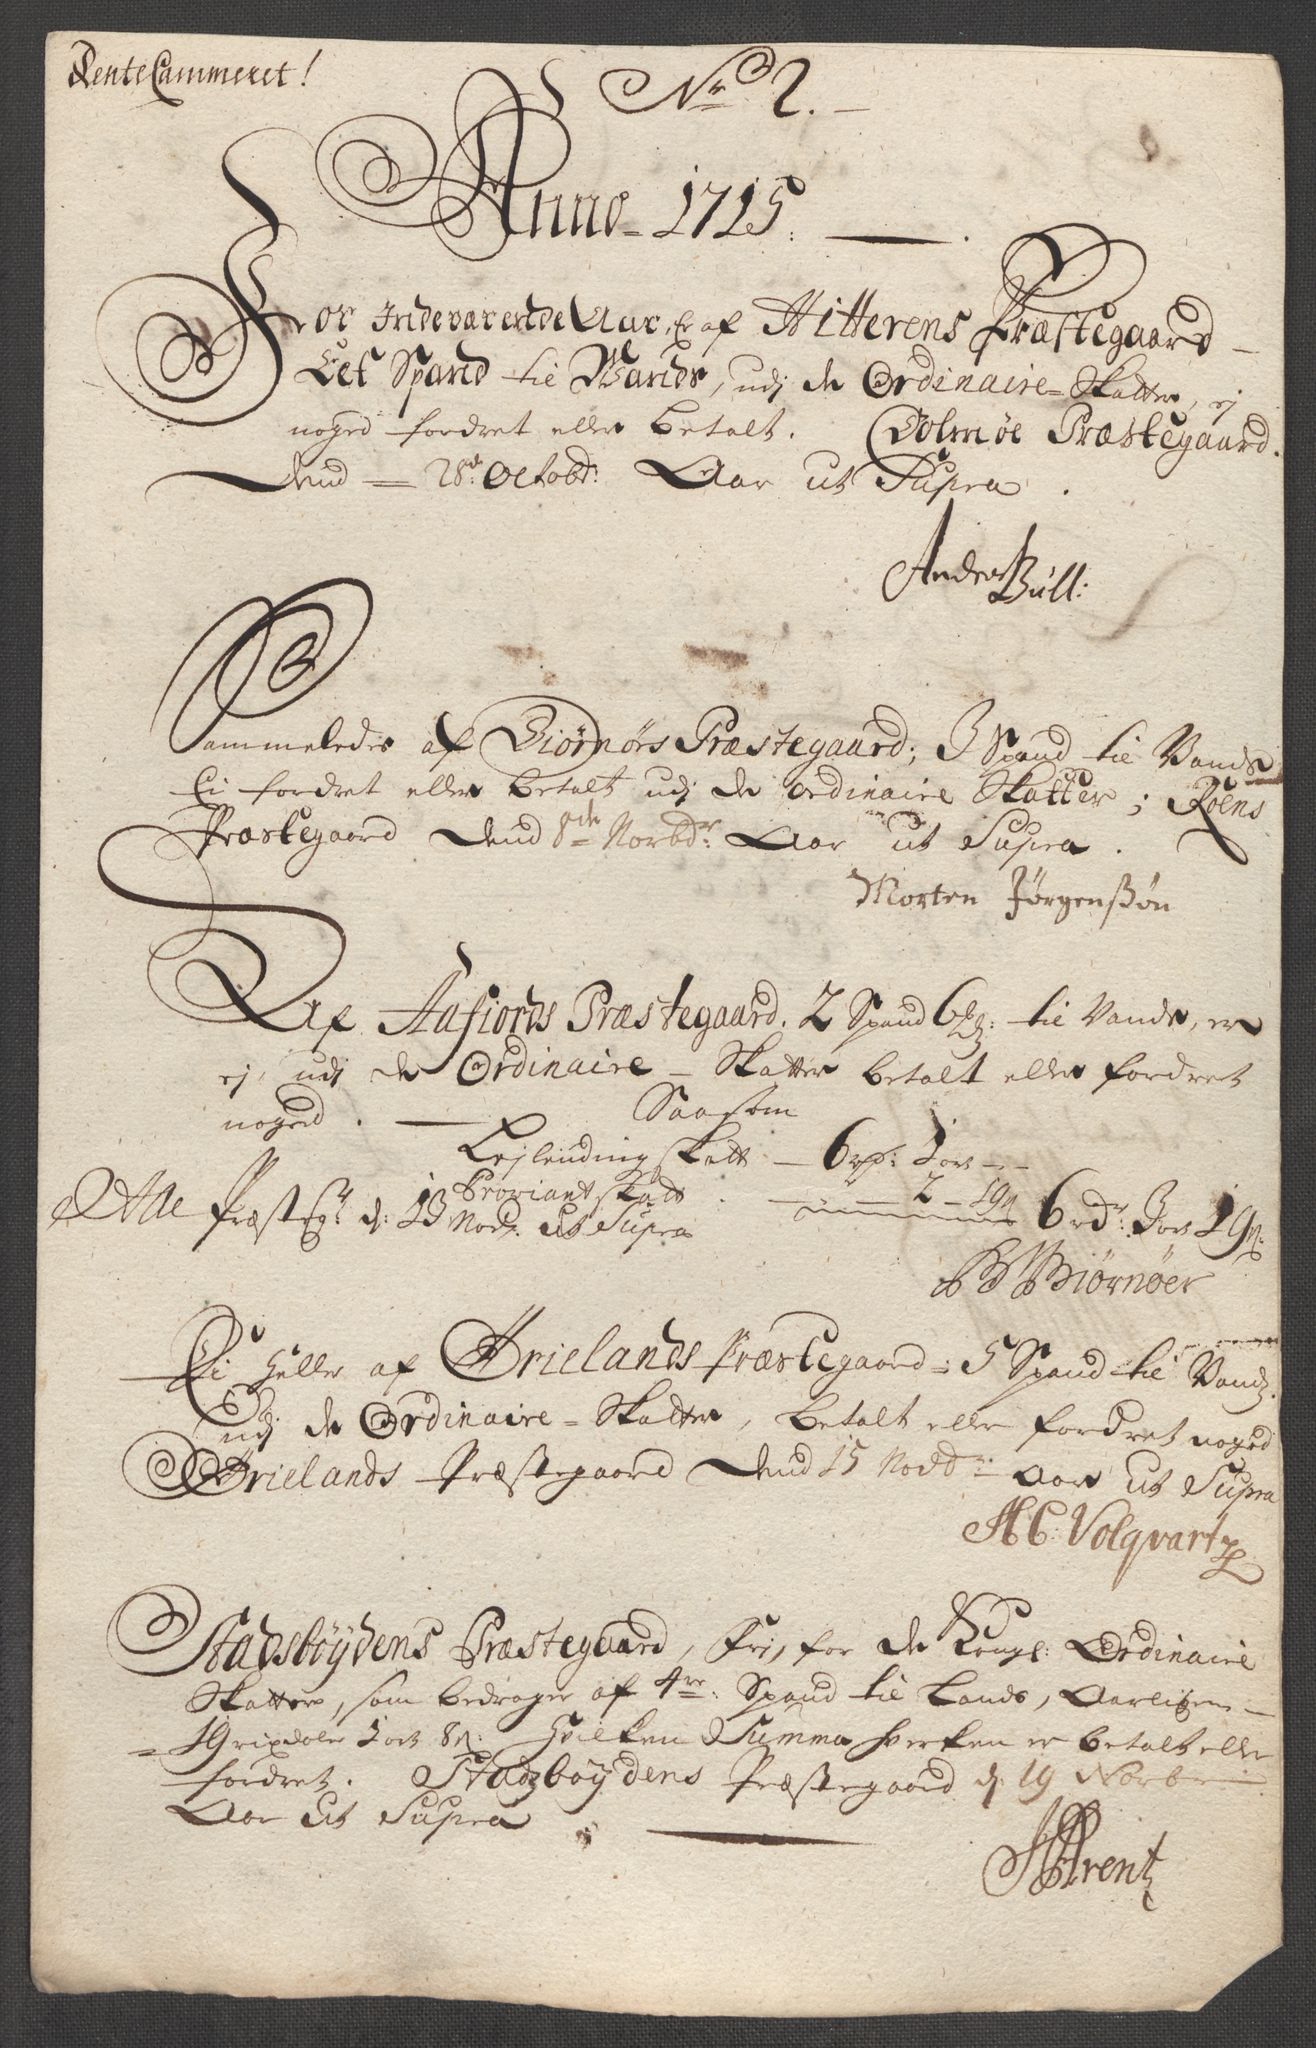 RenteCammeret!
No 2.
Anno - 1715.
For Indeværende Aar, Er af Hitterens Præstegaard
Set Spand til Wands, udj de Ordinaire - Skatter, ej
noged fordret eller betalt. Dolmøe Præstegaard.
Dend 28de Octobr: Aar ut Supra.
Anders Bull:
Sammeledes af Biørnørs Præstegaard; 3 Spand til Vands
Ei fordret eller betalt udj de ordinaire Skatter; Roens
Præstegaard Dend 8de Novbr: Aar ut Supra.
Morten Jørgenßøn
Af Aafiords Præstegaard. 2 Spand 6 til Vands, er
ej, udj de Ordinaire - Skatter betalt eller fordret
noged. Saasom
Lejlending skatt - 6 rd: 1 ort
Proviant skatt 2 - 19
Præstegd. d: 13 Nov. ut Supra 6 rd: 3 ort 19
Biørnøer
Ei heller af Ørielands Præstegaard: 5 Spand til Vandz.
udj de Ordinaire - Skatter, betalt eller fordret noged
Ørielands Præstegaard Dend 15 Novb: Aar ut Supra
HC: Volqvartz
Stadsbøydens Præstegaard, Fri, for de Kongl: Ordinaire
Skatter, som bedrager af 4re: Spand til Lands, Aarligen
19 rixdaler 1 ort 8: Hvilken Summa hverken er betalt eller
fordret. Stadzbøydens Præstegaard d: 19 Novbr
Aar ut Supra
Arentz